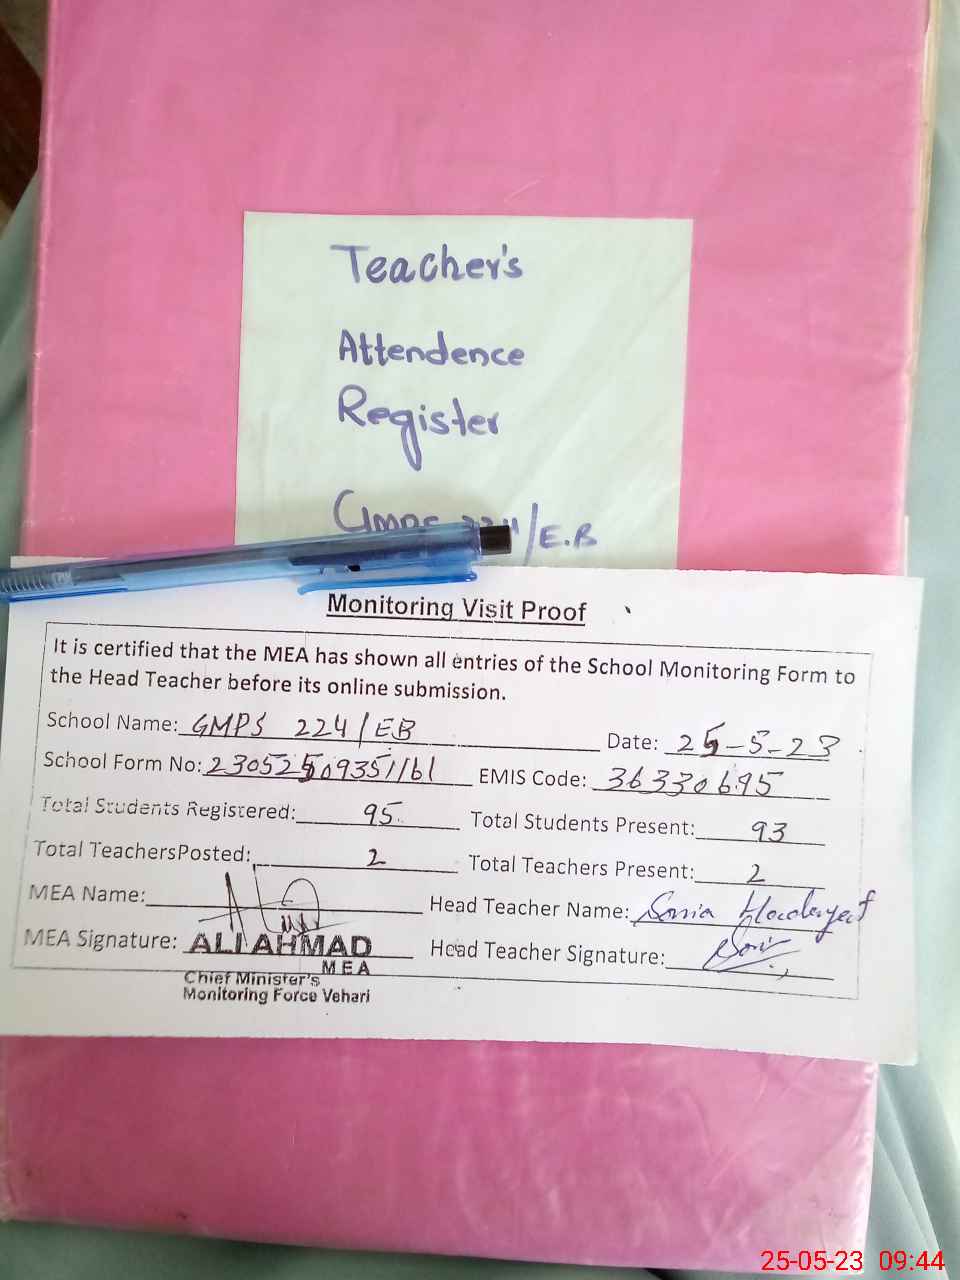 Teacher's
Attendence
Register
GMPS 224/E.B
Monitoring Visit Proof
It is certified that the MEA has shown all entries of the School Monitoring Form to
the Head Teacher before its online submission.
School Name: GMPS 224/EB Date: 25-5-23
School Form No: EMIS Code: 36330695
Total Students Registered: 95 Total Students Present: 93
Total TeachersPosted: 2 Total Teachers Present: 2
MEA Name: Head Teacher Name: Sonia
MEA Signature: ALI AHMAD Head Teacher Signature:
MEA
Chief Minister's
Monitoring Force Vehari
25-05-23 09:44